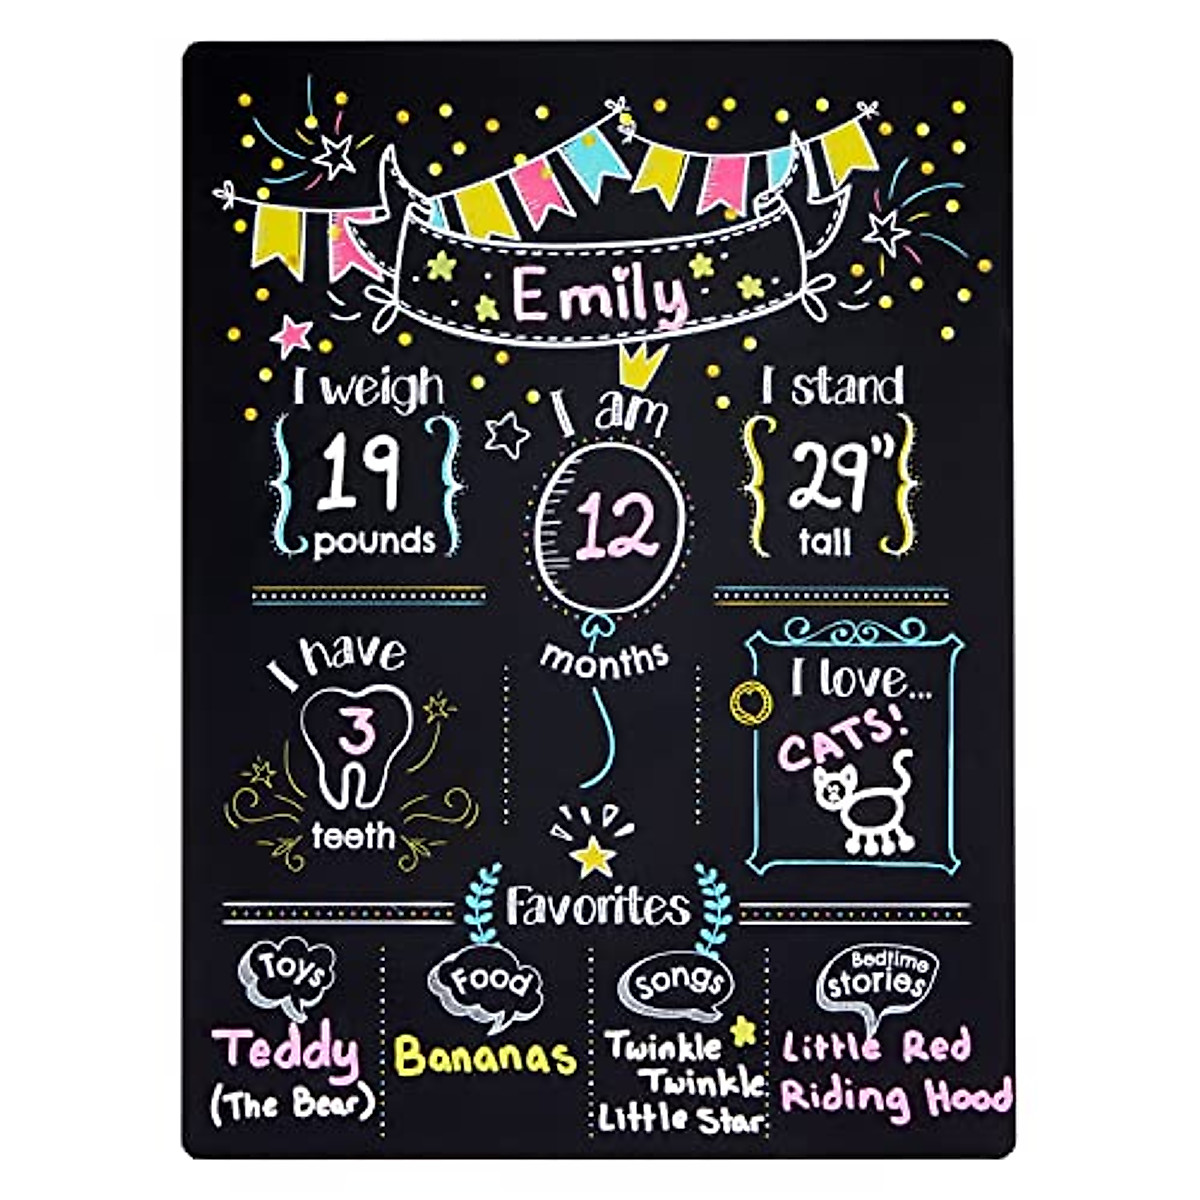 Emily
I weigh
19
pounds
I am
12
months
I stand
29"
tall
I have
3
teeth
I love...
CATS!
Favorites
Toys
Teddy
(The Bear)
Food
Bananas
Songs
Twinkle
Twinkle
Little Star
Bedtime
stories
Little Red
Riding Hood